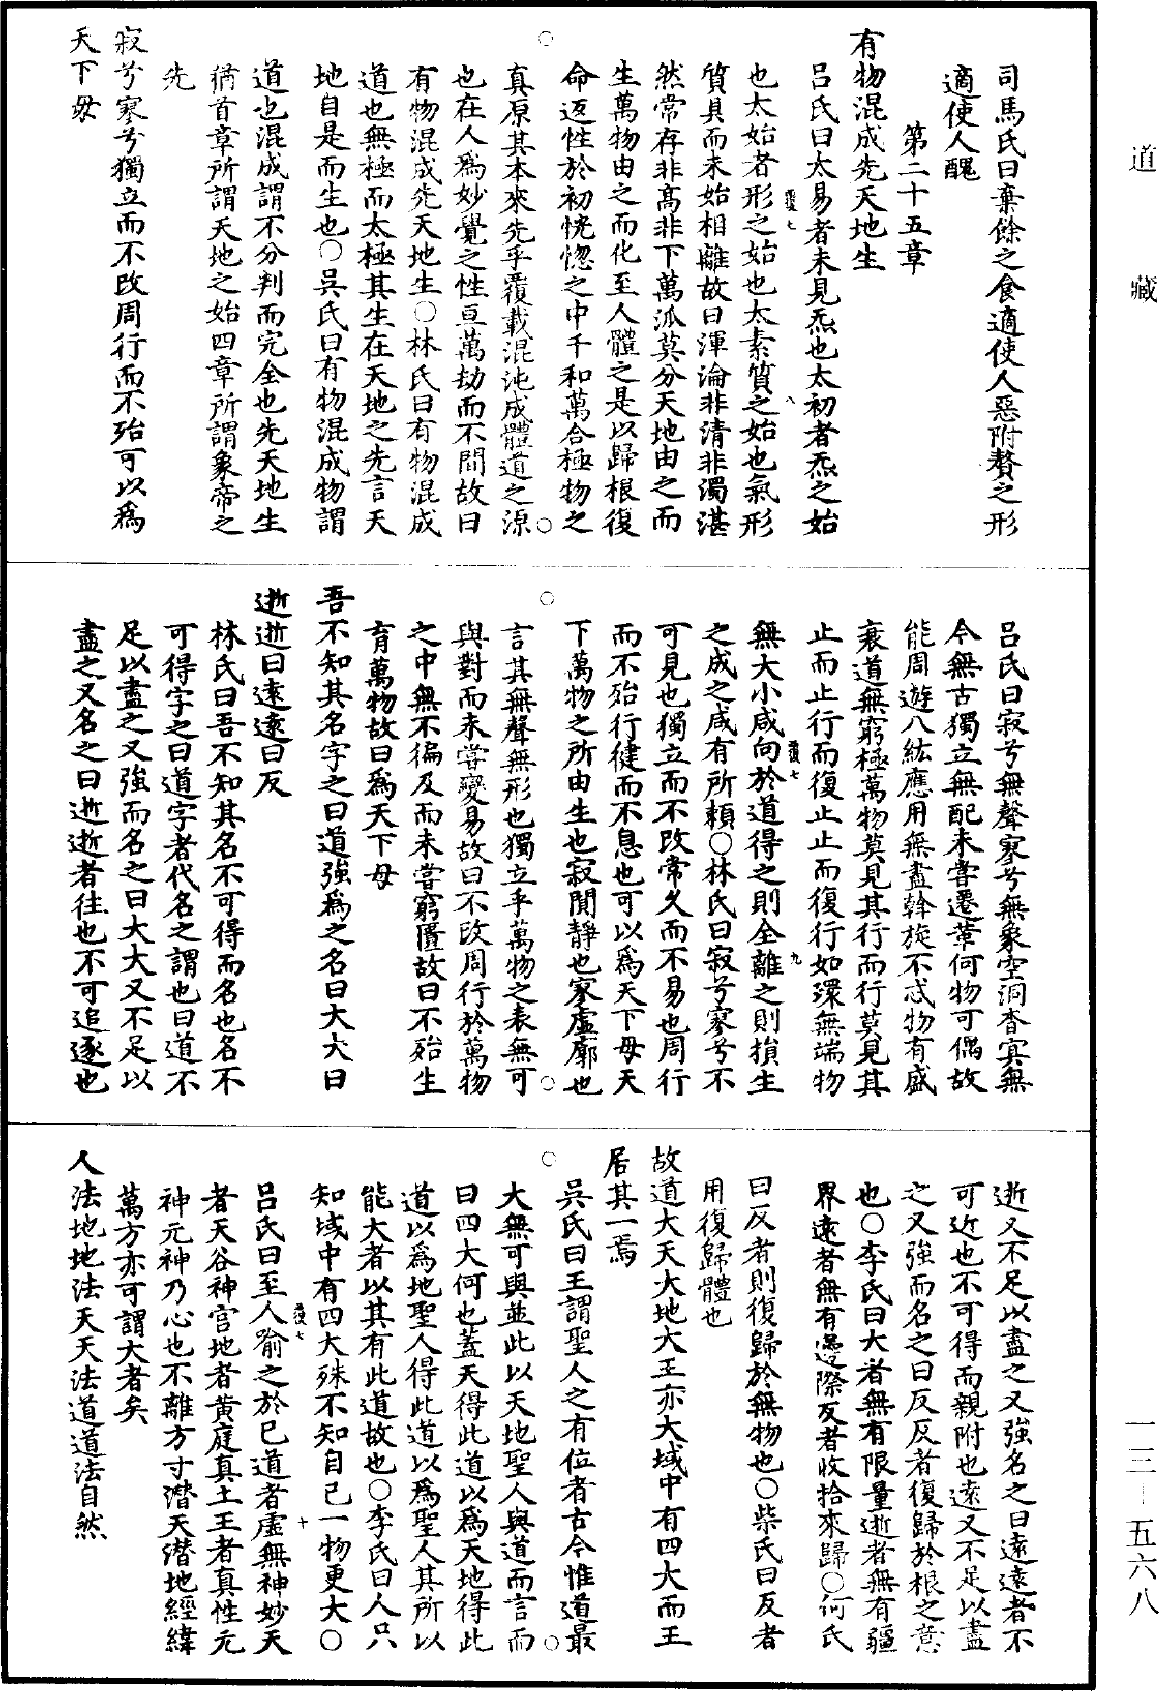 道藏
司馬氏曰棄餘之食適使人惡附贅之形
適使人醜
第二十五章
有物混成先天地生
呂氏曰太易者未見炁也太初者炁之始
也太始者形之始也太素質之始也氣形
質具而未始相離故曰渾淪非清非濁湛
然常存非高非下萬泒莫分天地由之而
生萬物由之而化至人體之是以歸根復
命返性於初恍惚之中千和萬合極物之
真原其本來先乎覆載混沌成體道之源
也在人為妙覺之性亘萬劫而不間故曰
有物混成先天地生○林氏曰有物混成
道也無極而太極其生在天地之先言天
地自是而生也○吳氏曰有物混成物謂
道也混成謂不分判而完全也先天地生
猶首章所謂天地之始四章所謂象帝之
先
寂兮寥兮獨立而不改周行而不殆可以為
天下母
呂氏曰寂兮無聲寥兮無象空洞杳冥無
今無古獨立無配未嘗遷革何物可偶故
能周遊八紘應用無盡斡旋不忒物有盛
衰道無窮極萬物莫見其行而行莫見其
止而止行而復止止而復行如環無端物
無大小咸向於道得之則全離之則損生
之成之咸有所賴○林氏曰寂兮寥兮不
可見也獨立而不改常久而不易也周行
而不殆行健而不息也可以為天下母天
下萬物之所由生也寂閒靜也寥虛廓也
言其無聲無形也獨立乎萬物之表無可
與對而未嘗變易故曰不改周行於萬物
之中無不徧及而未嘗窮匱故曰不殆生
育萬物故曰為天下母
吾不知其名字之曰道強為之名曰大大曰
逝逝曰遠遠曰反
林氏曰吾不知其名不可得而名也名不
可得字之曰道字者代名之謂也曰道不
足以盡之又強而名之曰大大又不足以
盡之又名之曰逝逝者往也不可追逐也
逝又不足以盡之又強名之曰遠遠者不
可近也不可得而親附也遠又不足以盡
之又強而名之曰反反者復歸於根之意
也○李氏曰大者無有限量逝者無有疆
界遠者無有邊際反者收拾來歸○何氏
曰反者則復歸於無物也○柴氏曰反者
用復歸體也
故道大天大地大王亦大域中有四大而王
居其一焉
吳氏曰王謂聖人之有位者古今惟道最
大無可與並此以天地聖人與道而言而
曰四大何也蓋天得此道以為天地得此
道以為地聖人得此道以為聖人其所以
能大者以其有此道故也○李氏曰人只
知域中有四大殊不知自己一物更大○
呂氏曰至人喻之於已道者虛無神妙天
者天谷神宮地者黄庭真土王者真性元
神元神乃心也不離方寸潛天潛地經緯
萬方亦可謂大者矣
人法地地法天天法道道法自然
一三－五六八